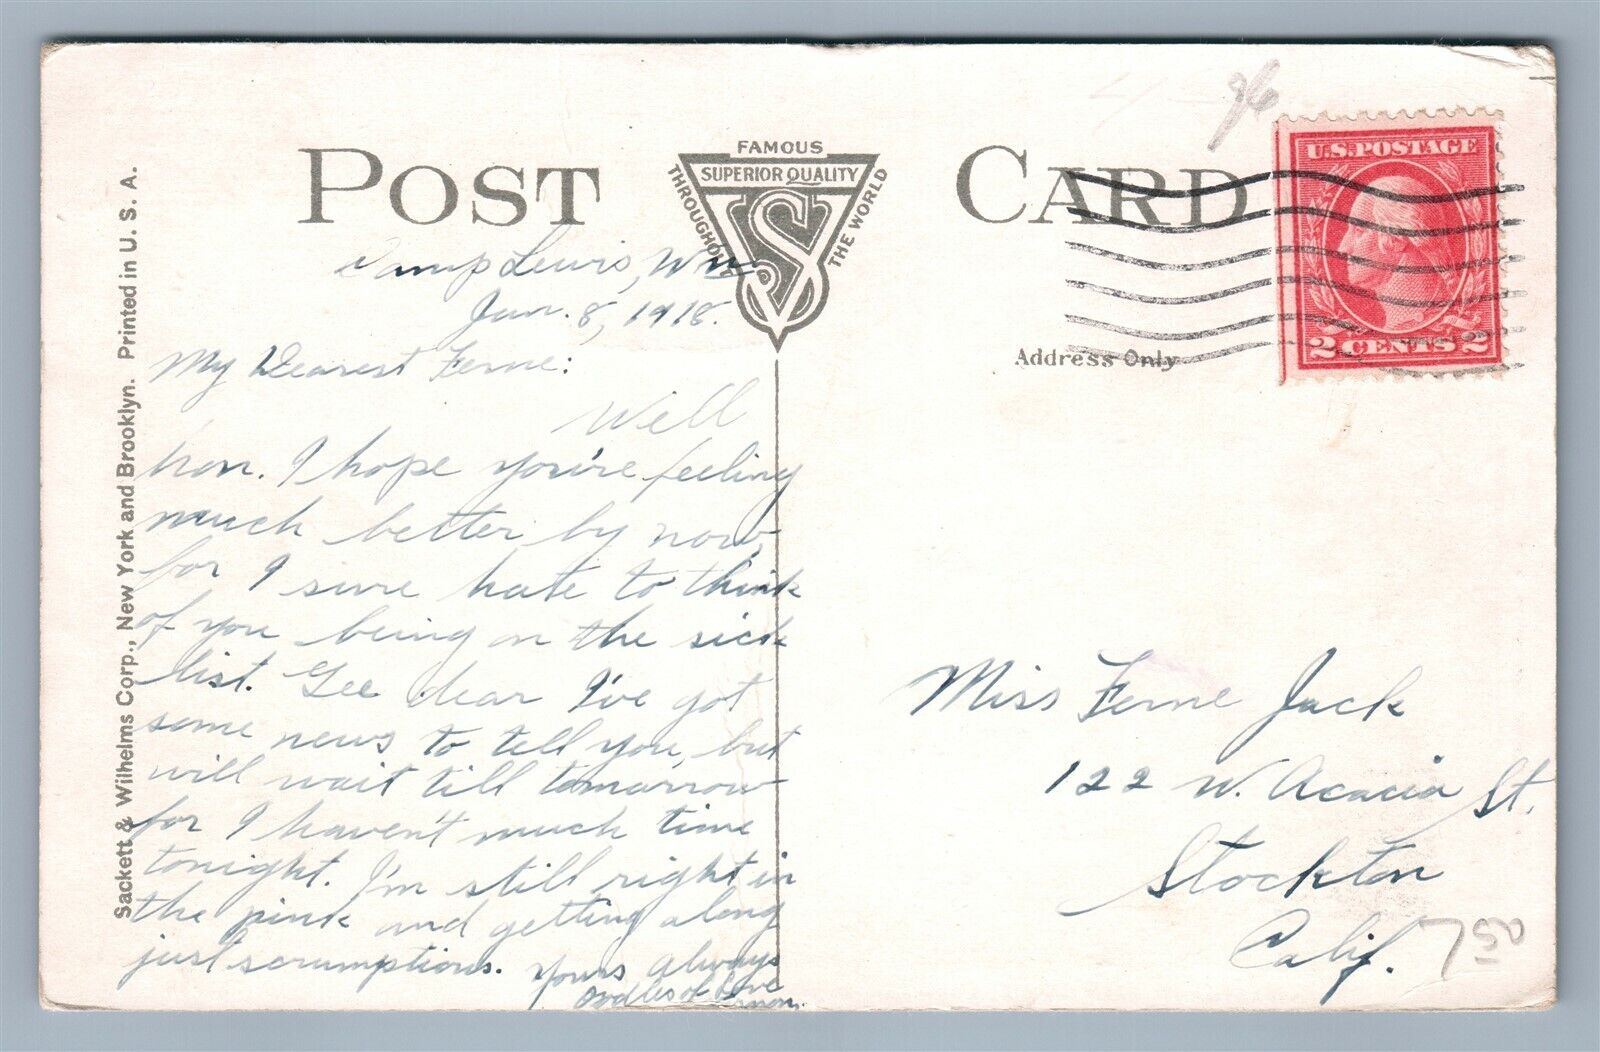 POST CARD
FAMOUS
SUPERIOR QUALITY
THROUGHOUT
THE WORLD
Camp Lewis, Wn.
Jan. 8, 1918.
My Dearest Ferne:
Well
hon. I hope you're feeling
much better by now,
for I sure hate to think
of you being on the sick
list. Gee dear I've got
some news to tell you, but
will wait till tomorrow
for I haven't much time
tonight. I'm still right in
the pink and getting along
just scrumptious. Yours Always
Oodles of Love
Sackett & Wilhelms Corp., New York and Brooklyn. Printed in U. S. A.
96
U.S. POSTAGE
2 CENTS 2
Address Only
Miss Ferne Jack
122 W. Acacia St.
Stockton
Calif.
750